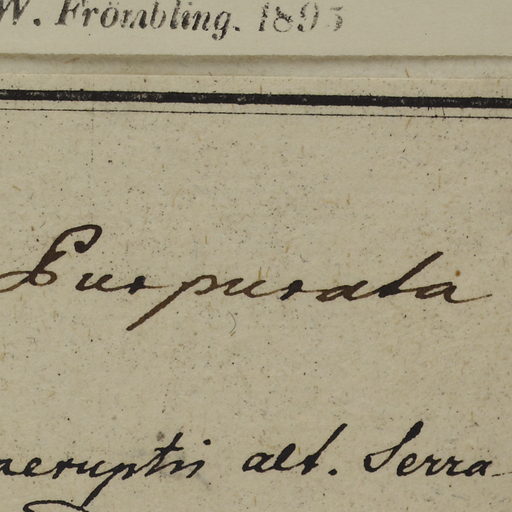 W. Frömbling. 1895
Purpurata
aeruptis alt. Serra